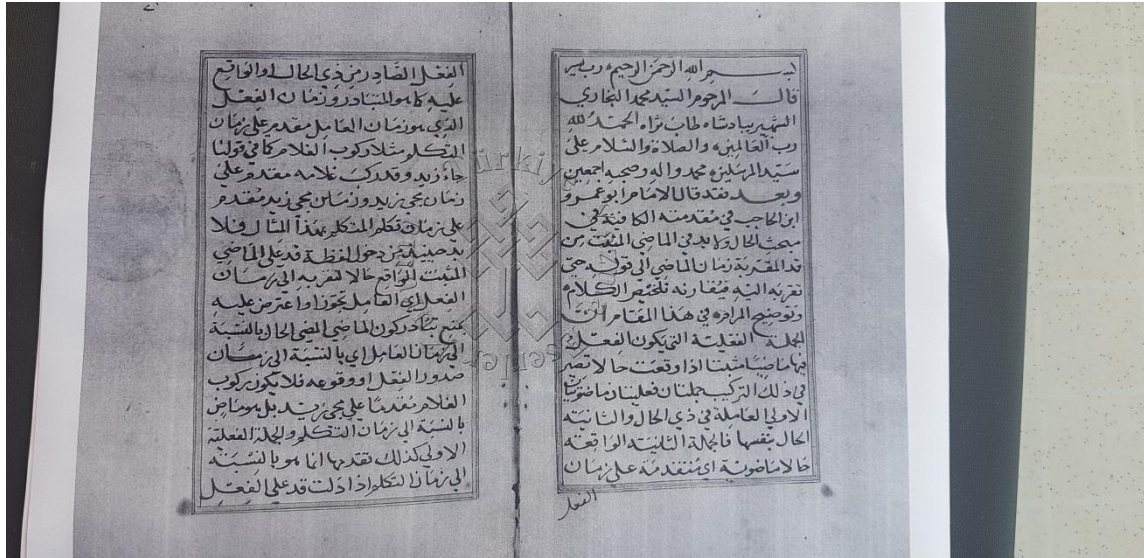 بسم الله الرحمن الرحيم رب يسر
قال المرحوم السيد محمد البخاري
الشهير ببادشاه طاب ثراه الحمد لله
رب العالمين والصلاة والسلام على
سيد المرسلين محمد واله وصحبه اجمعين
وبعد فقد قال الامام ابو عمرو
ابن الحاجب في مقدمته الكافية في
مبحث الحال ولا بد في الماضي المثبت من
قد المقربة زمان الماضي الى قوله حتى
تقربه اليه فيقارنه تلخيص الكلام
وتوضيح المرام في هذا المقام ان
الجملة الفعلية التي يكون الفعل
فيها ماضيا مثبتا اذا وقعت حالا تصير
في ذلك التركيب جملتان فعليتان ماضويتان
الاولى العاملة في ذي الحال والثانية
الحال بنفسها فالجملة الثانية الواقعة
حالا ماضوية اي متقدمة على زمان
الفعل
الفعل الصادر من ذي الحال او الواقع
عليه كما هو المتبادر وزمان الفعل
الذي هو زمان العامل مقدم على زمان
التكلم مثلا ركوب الغلام كما في قولنا
جاء زيد وقد ركب غلامه مقدم على
زمان مجي زيد وزمان مجي زيد مقدم
على زمان تكلم المتكلم بهذا المثال فلا
بد حينئذ من دخول لفظة قد على الماضي
المثبت الواقع حالا لتقربه الى زمان
الفعل اي العامل تجوزا واعترض عليه
بمنع تبادر كون الماضي المضي الحال بالنسبة
الى زمان العامل اي بالنسبة الى زمان
صدور الفعل او وقوعه فلا يكون ركوب
الغلام مقدما على مجي زيد بل هو ماض
بالنسبة الى زمان التكلم والجملة الفعلية
الاولى كذلك تقدمها انما هو بالنسبة
الى زمان التكلم اذا دلت قد على الفعل